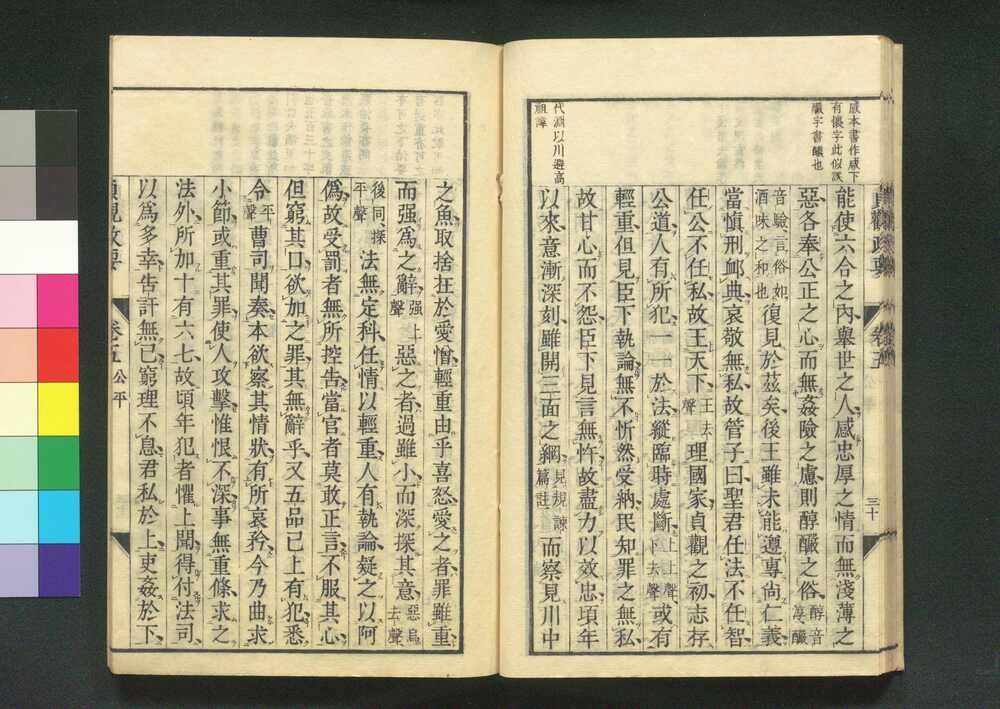 咸本書作感下
有懷字此似誤
釅字書醶也
代淵以川避高
祖諱
貞觀政要 卷五 三十
能使六合之內舉世之人感忠厚之情而無淺薄之
惡各奉公正之心而無姦險之慮則醇釅之俗醇音淳釅
音驗言俗如酒味之和也復見於茲矣後王雖未能遵專尙仁義
當愼刑卹典哀敬無私故管子曰聖君任法不任智
任公不任私故王天下王去聲理國家貞觀之初志存
公道人有所犯一一於法縱臨時處斷上上聲下去聲或有
輕重但見臣下執論無不忻然受納民知罪之無私
故甘心而不怨臣下見言無忤故盡力以效忠頃年
以來意漸深刻雖開三面之網見規諫篇註而察見川中
之魚取捨在於愛憎輕重由乎喜怒愛之者罪雖重
而强爲之辭强上聲惡之者過雖小而深探其意惡烏去聲
後同探平聲法無定科任情以輕重人有執論疑之以阿
僞故受罰者無所控告當官者莫敢正言不服其心
但窮其口欲加之罪其無辭乎又五品已上有犯悉
令平聲曹司聞奏本欲察其情狀有所哀矜今乃曲求
小節或重其罪使人攻擊惟恨不深事無重條求之
法外所加十有六七故頃年犯者懼上聞得付法司
以爲多幸告訐無已窮理不息君私於上吏姦於下
貞觀政要 卷五 公平